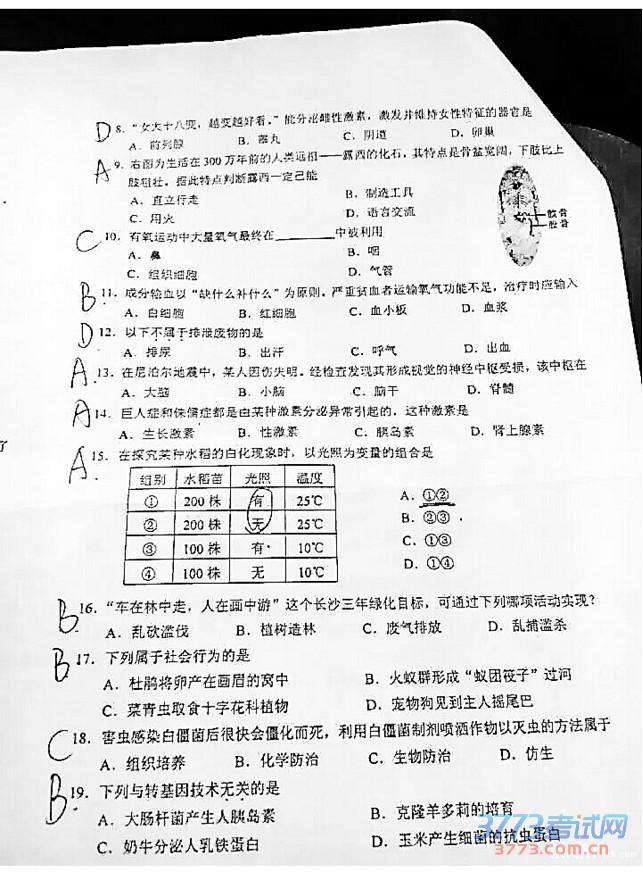 D 8. “女大十八变，越变越好看。”能分泌雌性激素，激发并维持女性特征的器官是
A. 前列腺 B. 睾丸 C. 阴道 D. 卵巢
A 9. 右图为生活在 300 万年前的人类远祖——露西的化石，其特点是骨盆宽阔，下肢比上
肢粗壮。据此特点判断露西一定已能
A. 直立行走 B. 制造工具
C. 用火 D. 语言交流
髋骨
股骨
C 10. 有氧运动中大量氧气最终在________中被利用
A. 鼻 B. 咽
C. 组织细胞 D. 气管
B 11. 成分输血以“缺什么补什么”为原则。严重贫血者运输氧气功能不足，治疗时应输入
A. 白细胞 B. 红细胞 C. 血小板 D. 血浆
D 12. 以下不属于排泄废物的是
A. 排尿 B. 出汗 C. 呼气 D. 出血
A 13. 在尼泊尔地震中，某人因伤失明。经检查发现其形成视觉的神经中枢受损，该中枢在
A. 大脑 B. 小脑 C. 脑干 D. 脊髓
A 14. 巨人症和侏儒症都是由某种激素分泌异常引起的，这种激素是
A. 生长激素 B. 性激素 C. 胰岛素 D. 肾上腺素
了
A 15. 在探究某种水稻的白化现象时，以光照为变量的组合是
组别 水稻苗 光照 温度
① 200 株 有 25℃
② 200 株 无 25℃
③ 100 株 有 10℃
④ 100 株 无 10℃
A. ①②
B. ②③
C. ①③
D. ①④
B 16. “车在林中走，人在画中游”这个长沙三年绿化目标，可通过下列哪项活动实现？
A. 乱砍滥伐 B. 植树造林 C. 废气排放 D. 乱捕滥杀
B 17. 下列属于社会行为的是
A. 杜鹃将卵产在画眉的窝中 B. 火蚁群形成“蚁团筏子”过河
C. 菜青虫取食十字花科植物 D. 宠物狗见到主人摇尾巴
C 18. 害虫感染白僵菌后很快会僵化而死，利用白僵菌制剂喷洒作物以灭虫的方法属于
A. 组织培养 B. 化学防治 C. 生物防治 D. 仿生
B 19. 下列与转基因技术无关的是
A. 大肠杆菌产生人胰岛素 B. 克隆羊多莉的培育
C. 奶牛分泌人乳铁蛋白 D. 玉米产生细菌的抗虫蛋白
3773考试网
3773.com.cn